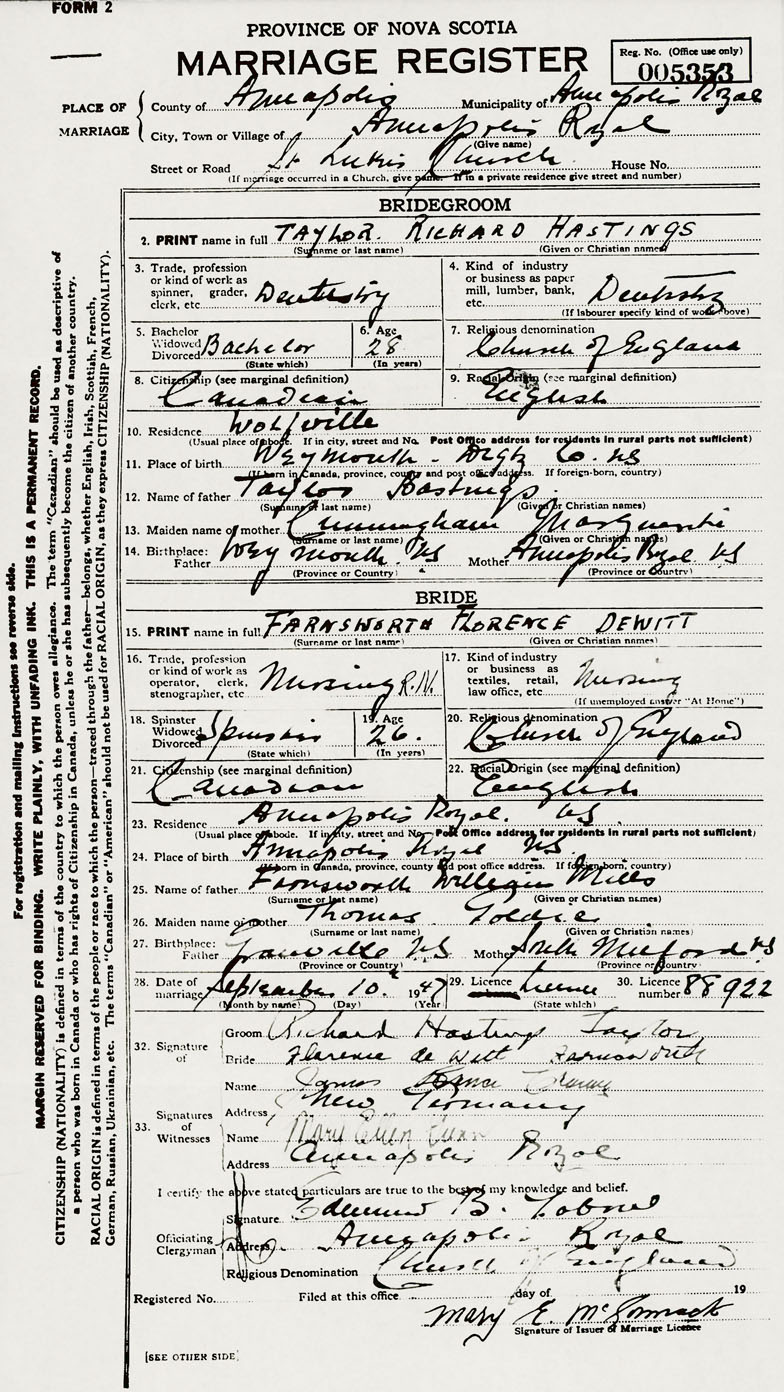 FORM 2
PROVINCE OF NOVA SCOTIA
MARRIAGE REGISTER
Reg. No. (Office use only)
005353
PLACE OF MARRIAGE
County of Annapolis Municipality of Annapolis Royal
City, Town or Village of Annapolis Royal
(Give name)
Street or Road St Lukes Church House No.
(If marriage occurred in a Church, give name. If in a private residence give street and number)
BRIDEGROOM
2. PRINT name in full TAYLOR RICHARD HASTINGS
(Surname or last name) (Given or Christian names)
3. Trade, profession or kind of work as spinner, grader, clerk, etc. Dentistry
4. Kind of industry or business as paper mill, lumber, bank, etc. Dentistry
(If labourer specify kind of work above)
5. Bachelor Widowed Divorced Bachelor
(State which)
6. Age 28
(In years)
7. Religious denomination
Church of England
8. Citizenship (see marginal definition)
Canadian
9. Racial Origin (see marginal definition)
English
10. Residence Wolfville
(Usual place of abode. If in city, street and No. Post Office address for residents in rural parts not sufficient)
11. Place of birth Weymouth - Digby Co. NS
(If born in Canada, province, county and post office address. If foreign-born, country)
12. Name of father Taylor Hastings
(Surname or last name) (Given or Christian names)
13. Maiden name of mother Cunningham Marguerite
(Surname or last name) (Given or Christian names)
14. Birthplace: Father Weymouth NS Mother Annapolis Royal NS
(Province or Country) (Province or Country)
BRIDE
15. PRINT name in full FARNSWORTH FLORENCE DEWITT
(Surname or last name) (Given or Christian names)
16. Trade, profession or kind of work as operator, clerk, stenographer, etc Nursing R.N.
17. Kind of industry or business as textiles, retail, law office, etc. Nursing
(If unemployed answer "At Home")
18. Spinster Widowed Divorced Spinster
(State which)
19. Age 26.
(In years)
20. Religious denomination
Church of England
21. Citizenship (see marginal definition)
Canadian
22. Racial Origin (see marginal definition)
English
23. Residence Annapolis Royal. NS
(Usual place of abode. If in city, street and No. Post Office address for residents in rural parts not sufficient)
24. Place of birth Annapolis Royal NS.
(If born in Canada, province, county and post office address. If foreign-born, country)
25. Name of father Farnsworth William Mills
(Surname or last name) (Given or Christian names)
26. Maiden name of mother Thomas Goldie
(Surname or last name) (Given or Christian names)
27. Birthplace: Father Granville NS Mother Milford NS
(Province or Country) (Province or Country)
28. Date of marriage September 10. 1947
(Month by name) (Day) (Year)
29. Licence Licence
(State which)
30. Licence number 88922
32. Signature of
Groom Richard Hastings Taylor
Bride Florence de Witt Farnsworth
33. Signatures of Witnesses
Name James
Address New Germany
Name Mary Ellen
Address Annapolis Royal
I certify the above stated particulars are true to the best of my knowledge and belief.
Officiating Clergyman
Signature Edmund B.
Address Annapolis Royal
Religious Denomination Church of England
Registered No. Filed at this office day of 19
Mary E. McCormack
Signature of Issuer of Marriage Licence
[SEE OTHER SIDE]
For registration and mailing instructions see reverse side.
MARGIN RESERVED FOR BINDING. WRITE PLAINLY, WITH UNFADING INK. THIS IS A PERMANENT RECORD.
CITIZENSHIP (NATIONALITY) is defined in terms of the country to which the person owes allegiance. The term "Canadian" should be used as descriptive of
a person who was born in Canada or who has rights of Citizenship in Canada, unless he or she has subsequently become the citizen of another country.
RACIAL ORIGIN is defined in terms of the people or race to which the person—traced through the father—belongs, whether English, Irish, Scottish, French,
German, Russian, Ukrainian, etc. The terms "Canadian" or "American" should not be used for RACIAL ORIGIN, as they express CITIZENSHIP (NATIONALITY).